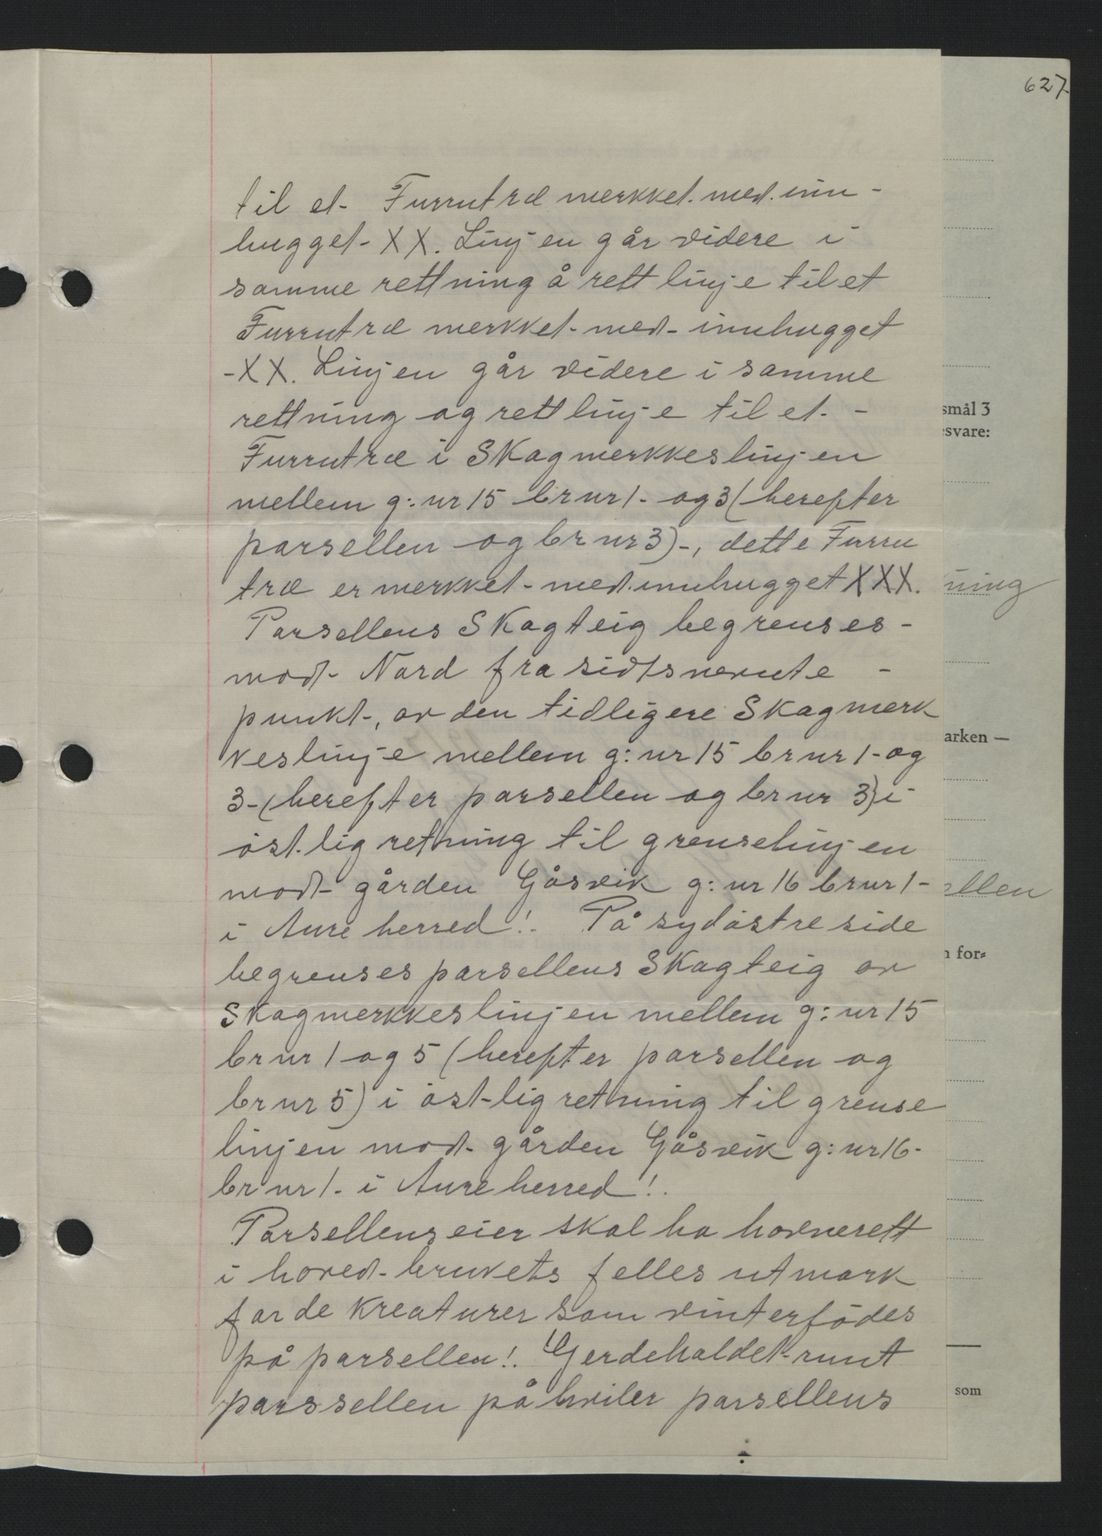 627
til et- Furrutræ merkket. med. inn-
hugget- XX. Linjen går videre i
samme rettning å rett linje til et
Furrutræ merkket- med- innhugget
-XX. Linjen går videre i samme
rettning og rett linje til et. -
Furrutræ i Skogmerkkeslinjen
mellem g: nr 15 br nr 1- og 3 (herefter
parsellen og br nr 3)-, dette Furru
træ er merkket- med. innhugget XXX.
Parsellens Skogteig begrenses-
mod- Nord fra sidtsnevnte -
punkt-, av den tidligere Skogmerk
keslinje mellem g: nr 15 br nr 1- og
3- (herefter parsellen og br nr 3) i
östlig retning til grenselinjen
mod- gården Gåsvik g: nr 16 br nr 1-
i Aure herred!. På sydöstre side
begrenses parsellens Skogteig av
Skogmerkkeslinjen mellem g: nr 15
br nr 1 og 5 (herefter parsellen og
br nr 5) i öst-lig retning til grense
linjen mod- gården Gåsvik g: nr 16-
br nr 1- i Aure herred!.
Parsellens eier skal ha havnerett
i hoved-brukets felles utmark
for de kreaturer som vinterfödes
på parsellen!. Gjerdeholdet- runt
parssellen påhviler parsellens
smål 3
svare:
ning
arken —
ellen
for-
som